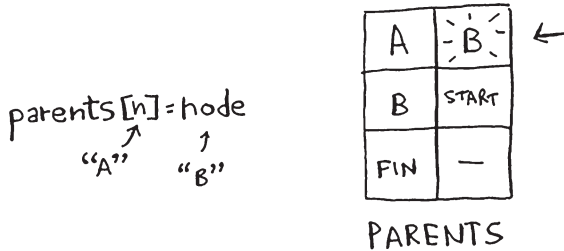 parents[n]=node
"A"
"B"
A B
B START
FIN —
PARENTS